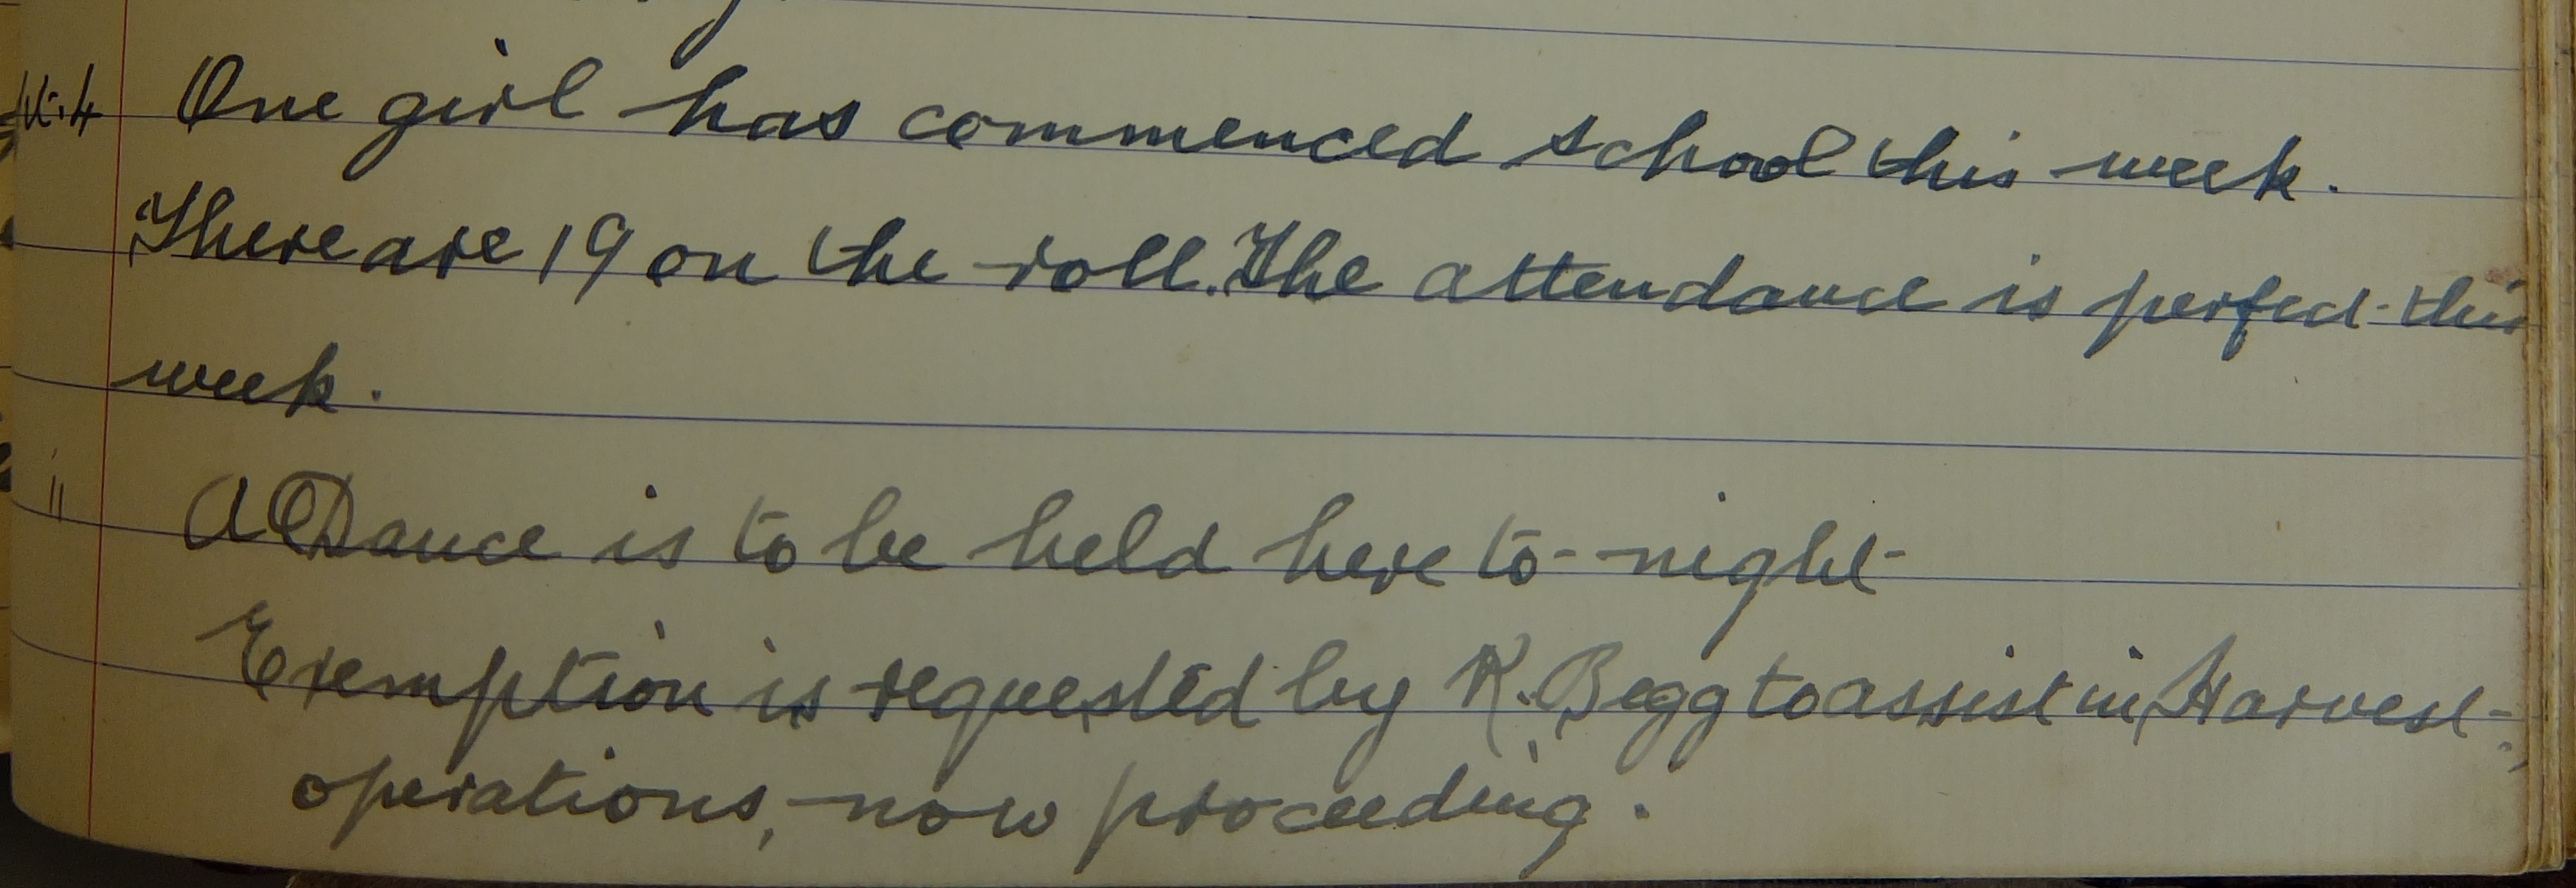 One girl has commenced school this week.
There are 19 on the roll. The attendance is perfect this
week.
" A Dance is to be held here to-night
Exemption is requested by K. Begg to assist in Harvest
operations, now proceeding.